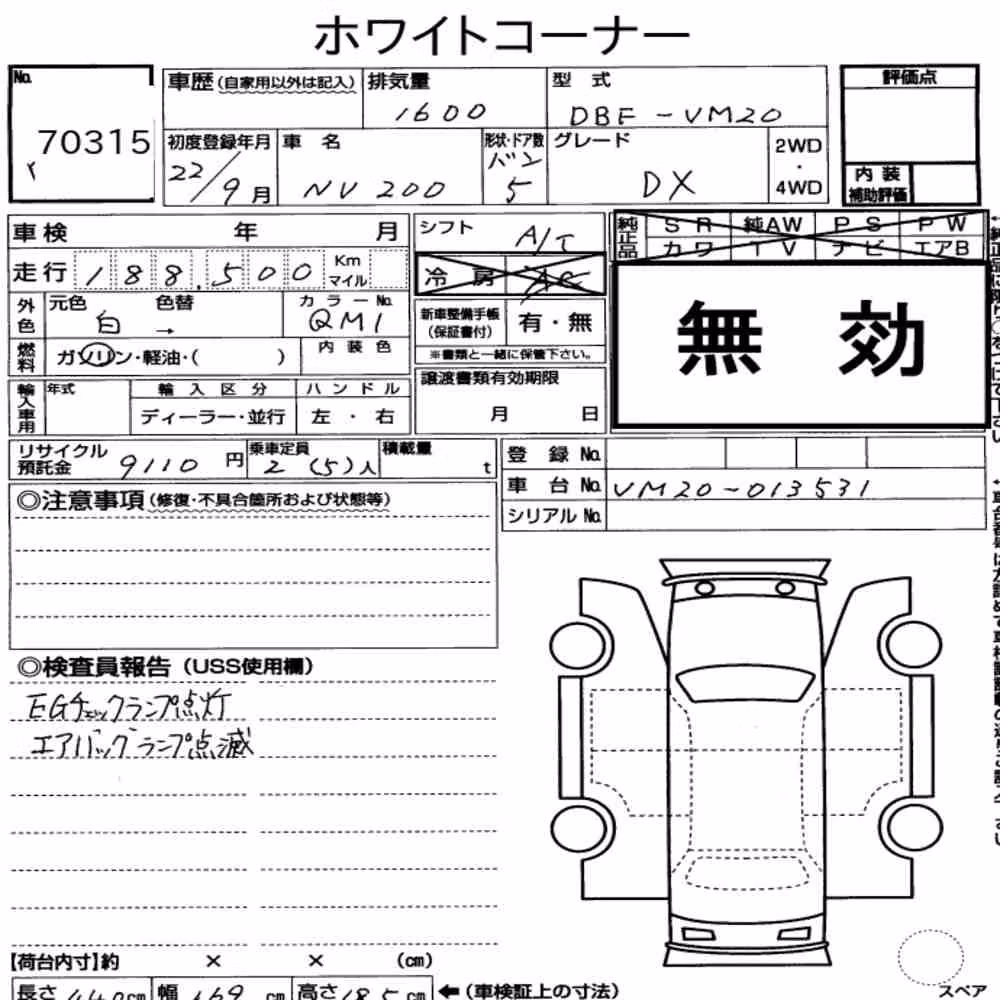 ホワイトコーナー
No. 70315
車歴 (自家用以外は記入)
排気量 1600
型式 DBF-VM20
評価点
初度登録年月 22/9月
車名 NV200
形状・ドア数 バン 5
グレード DX
2WD・4WD
内装補助評価
車検 年 月
シフト A/T
純正品 SR 純AW PS PW
カワ TV ナビ エアB
走行 188,500 Km マイル
冷房 AC
無効
外色 元色 白 色替 → カラーNo. QM1
新車整備手帳(保証書付) 有・無
※書類と一緒に保管下さい。
燃料 ガソリン・軽油・( ) 内装色
譲渡書類有効期限
月 日
輸入車用 年式 輸入区分 ハンドル
ディーラー・並行 左・右
リサイクル預託金 9110円
乗車定員 2(5)人
積載量 t
登録No.
車台No. VM20-013531
シリアルNo.
◎注意事項(修復・不具合箇所および状態等)
◎検査員報告(USS使用欄)
EGチェックランプ点灯
エアバッグランプ点滅
【荷台内寸】約 × × (cm)
長さ 440cm 幅 169cm 高さ 185cm ←(車検証上の寸法)
スペア